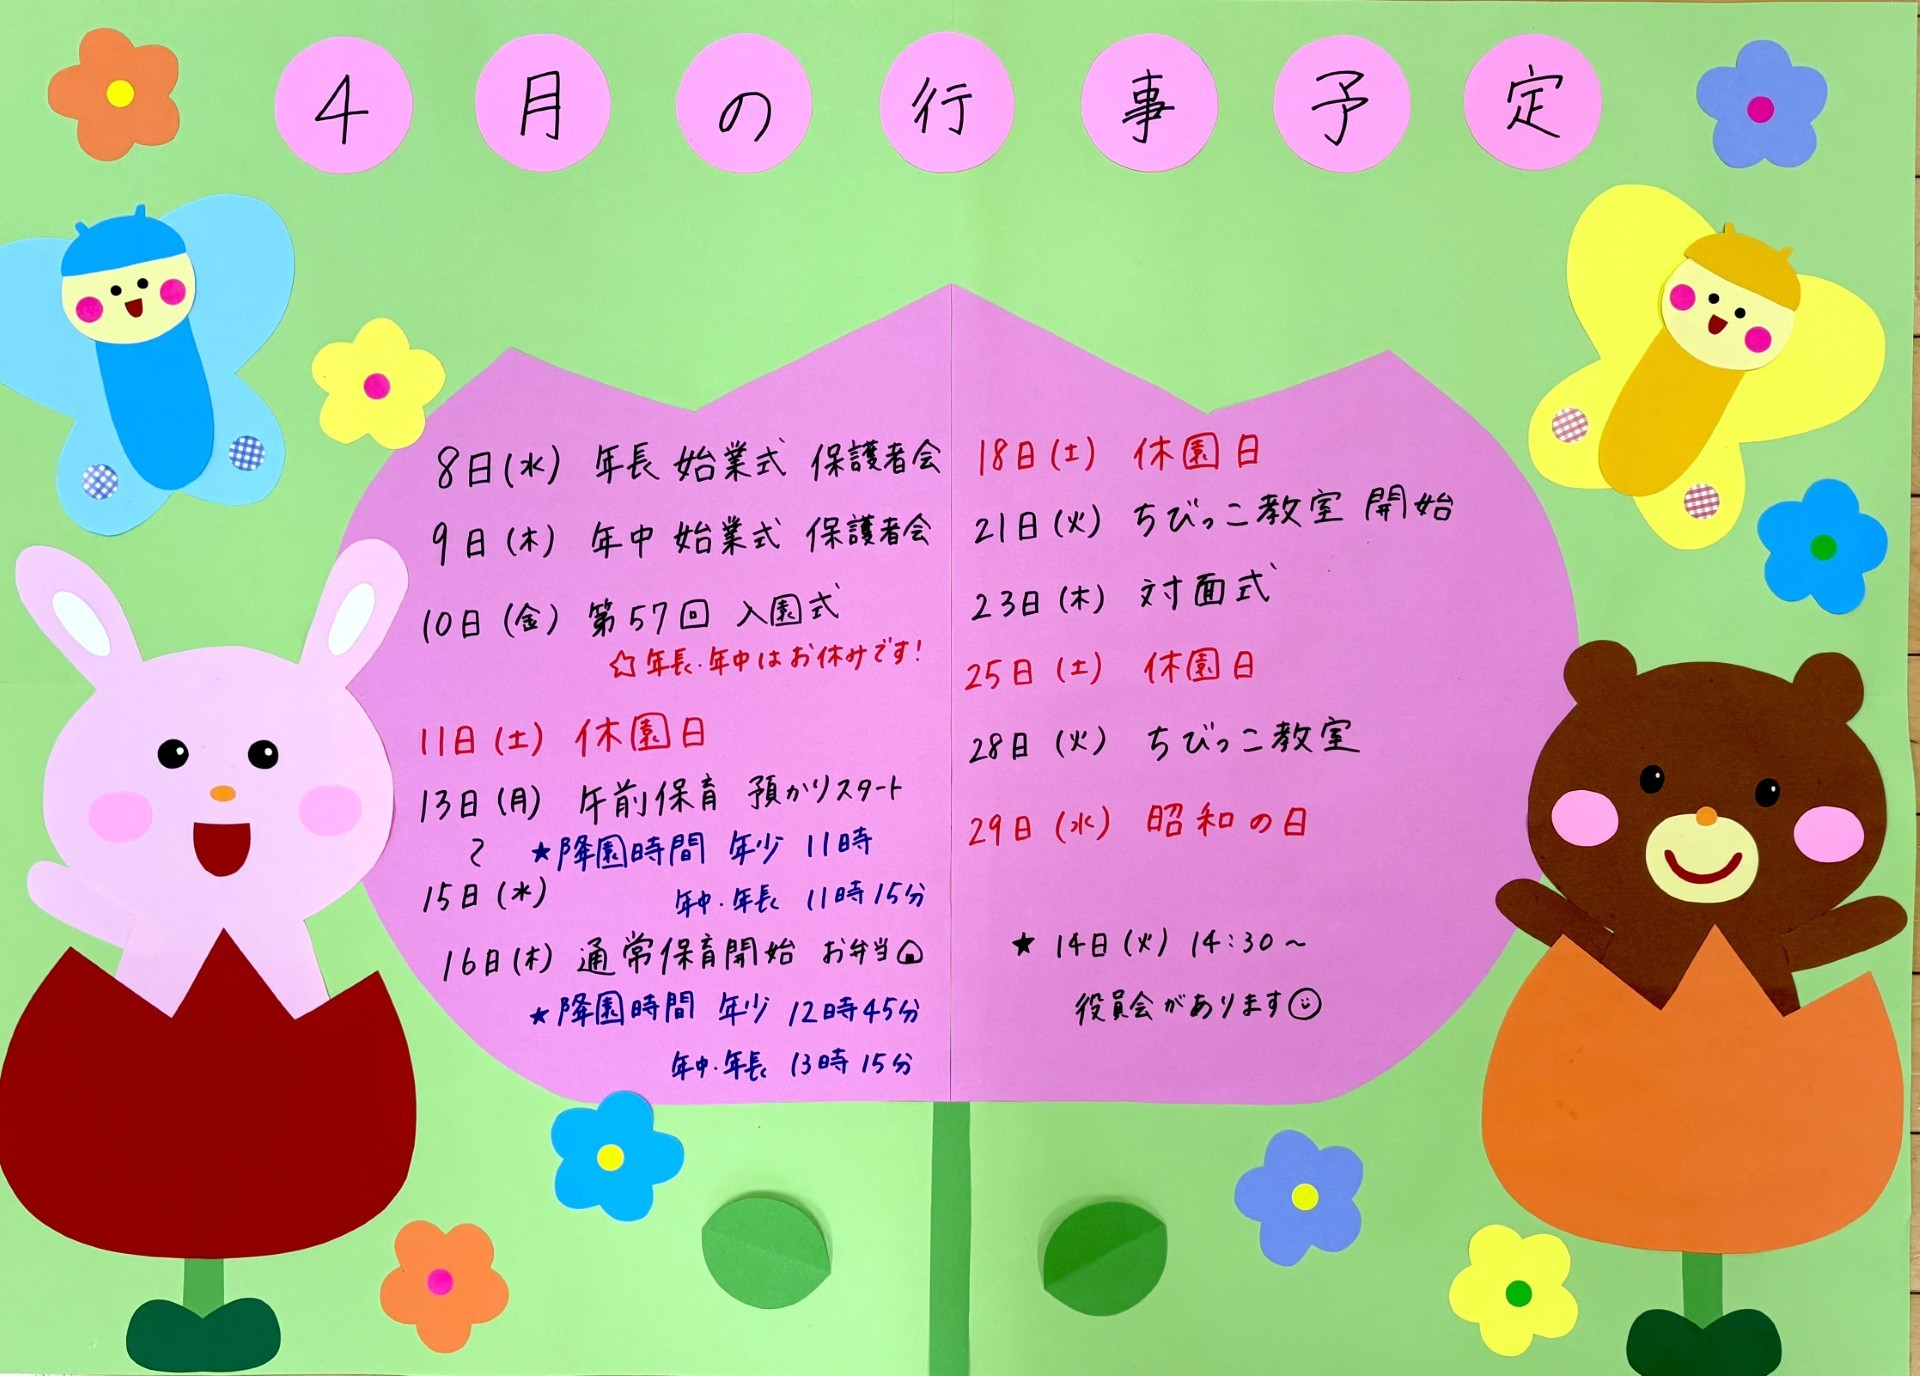 4月の行事予定
8日(水) 年長 始業式 保護者会
9日(木) 年中 始業式 保護者会
10日(金) 第57回 入園式
☆年長・年中はお休みです!
11日(土) 休園日
13日(月) 午前保育 預かりスタート
〜 ★降園時間 年少 11時
15日(水) 年中・年長 11時15分
16日(木) 通常保育開始 お弁当🍙
★降園時間 年少 12時45分
年中・年長 13時15分
18日(土) 休園日
21日(火) ちびっこ教室 開始
23日(木) 対面式
25日(土) 休園日
28日(火) ちびっこ教室
29日(水) 昭和の日
★ 14日(火) 14:30〜
役員会があります☺